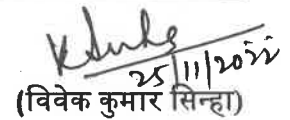 25/11/2022
(विवेक कुमार सिन्हा)